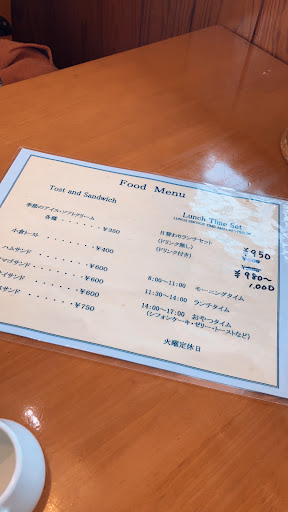 Food Menu
Tost and Sandwich
季節のアイル・ソフトクリーム
各種 ・・・・・・・￥350
小倉トースト ・・・・・・・￥400
ハムサンド ・・・・・・・￥600
タマゴサンド ・・・・・・・￥600
イサンド ・・・・・・・￥600
サンド ・・・・・・・￥750
Lunch Time Set
日替わりランチセット
(ドリンク無し) ￥950
(ドリンク付き) ￥980～
1,000
8:00～11:00 モーニングタイム
11:30～14:00 ランチタイム
14:00～17:00 おやつタイム
(シフォンケーキ・ゼリー・トーストなど)
火曜定休日